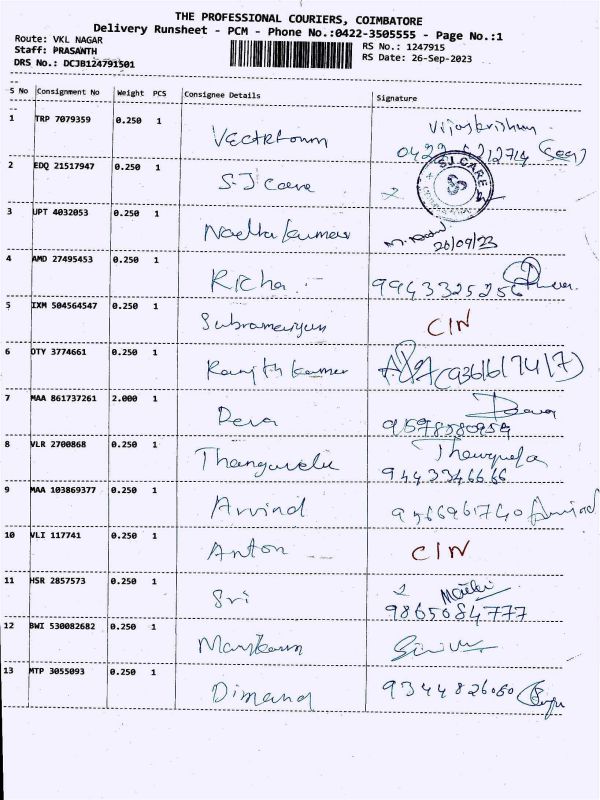 THE PROFESSIONAL COURIERS, COIMBATORE
Delivery Runsheet - PCM - Phone No.:0422-3505555 - Page No.:1
Route: VKL NAGAR RS No.: 1247915
Staff: PRASANTH RS Date: 26-Sep-2023
DRS No.: DCJB124791501
S No Consignment No Weight PCS Consignee Details Signature
1 TRP 7079359 0.250 1 Vijaykrishnan
0422 (Seal)
2 EDQ 21517947 0.250 1 S.J Care S.J.CARE
3 UPT 4032053 0.250 1 26/09/23
4 AMD 27495453 0.250 1 Richa 9943325256
5 IXM 504564547 0.250 1 Subramaniyan CIN
6 OTY 3774661 0.250 1 Ranjith kumar
7 MAA 861737261 2.000 1 Deva Deva
9597580959
8 VLR 2700868 0.250 1 Thangavelu
9443346666
9 MAA 103869377 0.250 1 Arvind Arvind
10 VLI 117741 0.250 1 Anton CIN
11 HSR 2857573 0.250 1 Sri
9865084777
12 BWI 530082682 0.250 1
13 MTP 3055093 0.250 1 Dimand 9344826050